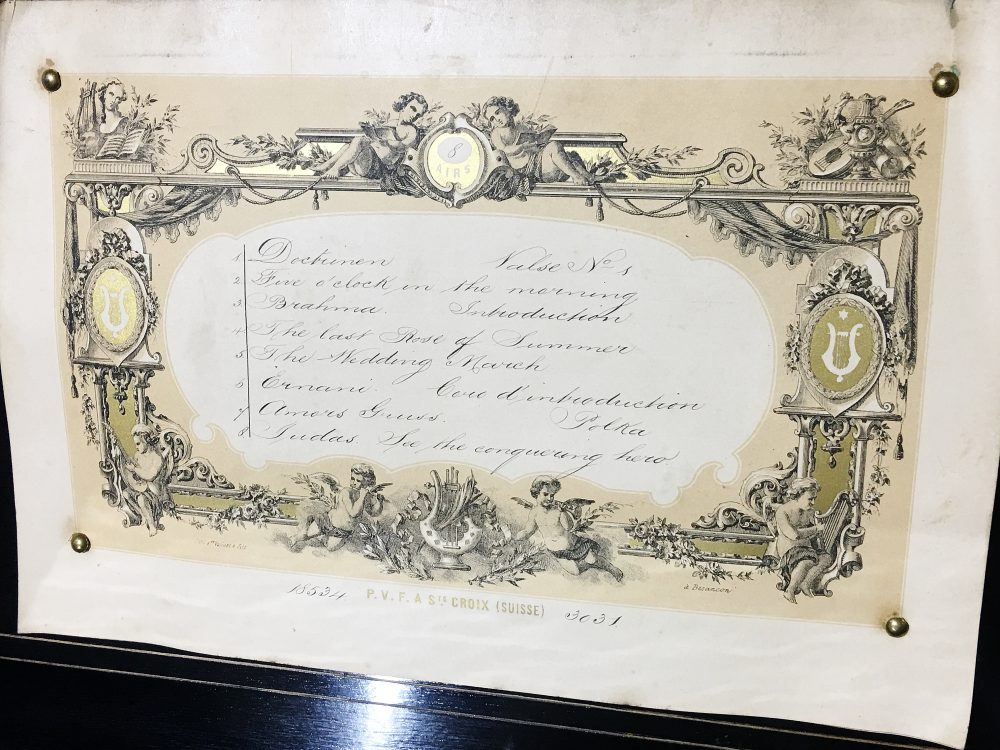 8
AIRS
1 Doctrinen Valse No 1
2 Five o'clock in the morning
3 Brahma. Introduction
4 The last Rose of Summer
5 The Wedding March
6 Ernani. Coro d'introduction
7 Amors Gruss. Polka
8 Judas. See the conquering hero
à Besançon
18534 P.V.F. A STE CROIX (SUISSE) 3031